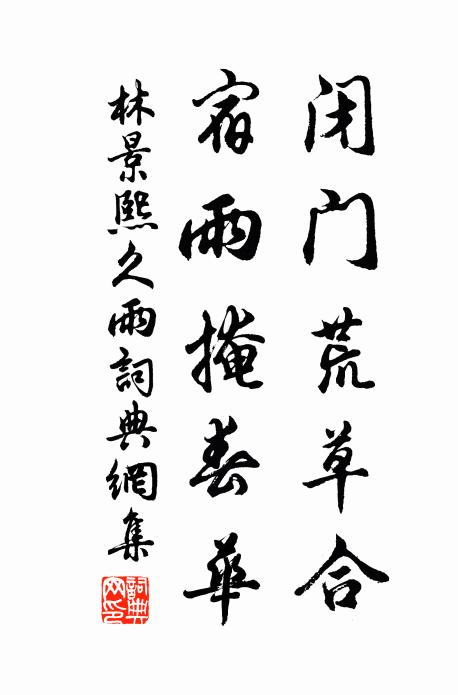 闭门荒草合
宿雨掩春華
林景熙久雨詞典網集
詞典网印